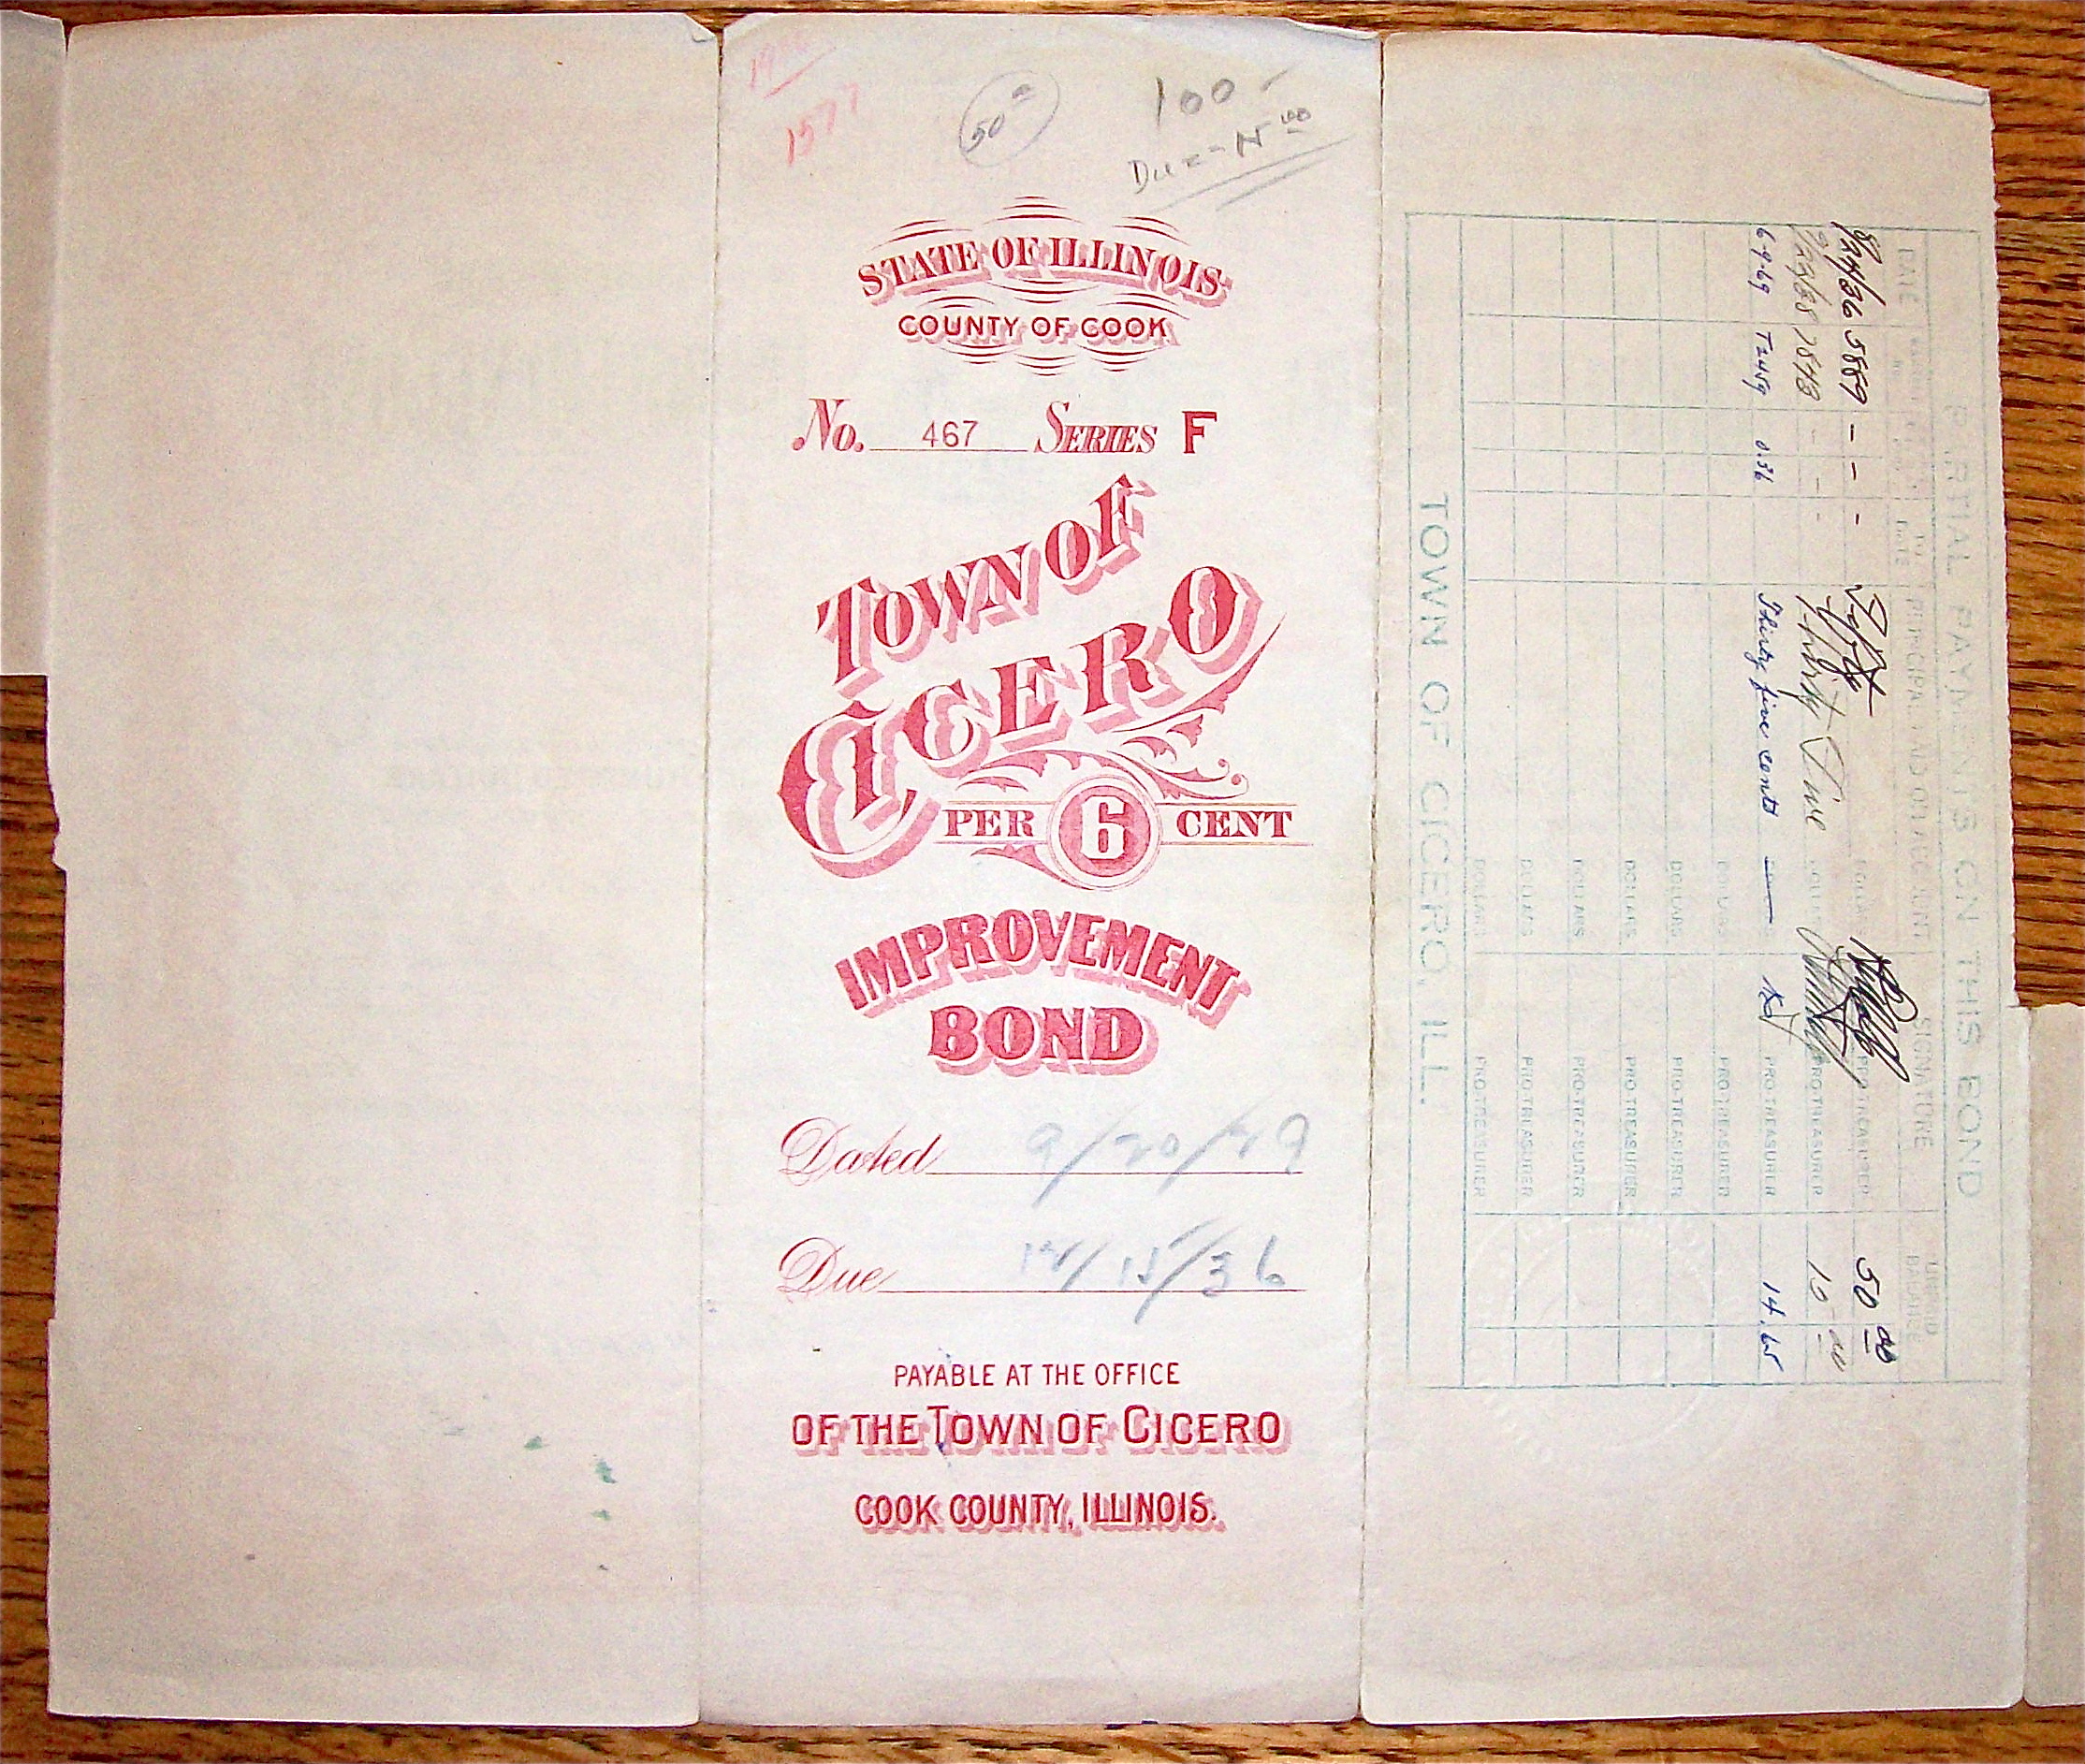 1577
50
100 -
Due
STATE OF ILLINOIS
COUNTY OF COOK
No. 467 SERIES F
TOWN OF
CICERO
PER 6 CENT
IMPROVEMENT
BOND
Dated 9/20/29
Due 12/15/36
PAYABLE AT THE OFFICE
OF THE TOWN OF CICERO
COOK COUNTY, ILLINOIS.
PARTIAL PAYMENTS ON THIS BOND
DATE TO DATE PRINCIPAL AND OR ACCOUNT SIGNATURE UNPAID BALANCE
8/24/36 5889 - - - Fifty DOLLARS PRO TREASURER 50 00
7843 - - - Thirty Five DOLLARS PRO TREASURER 15 00
6-9-69 0.36 Thirty five cents — PRO TREASURER 14.65
DOLLARS PRO TREASURER
DOLLARS PRO TREASURER
DOLLARS PRO TREASURER
DOLLARS PRO TREASURER
DOLLARS PRO TREASURER
DOLLARS PRO TREASURER
TOWN OF CICERO, ILL.